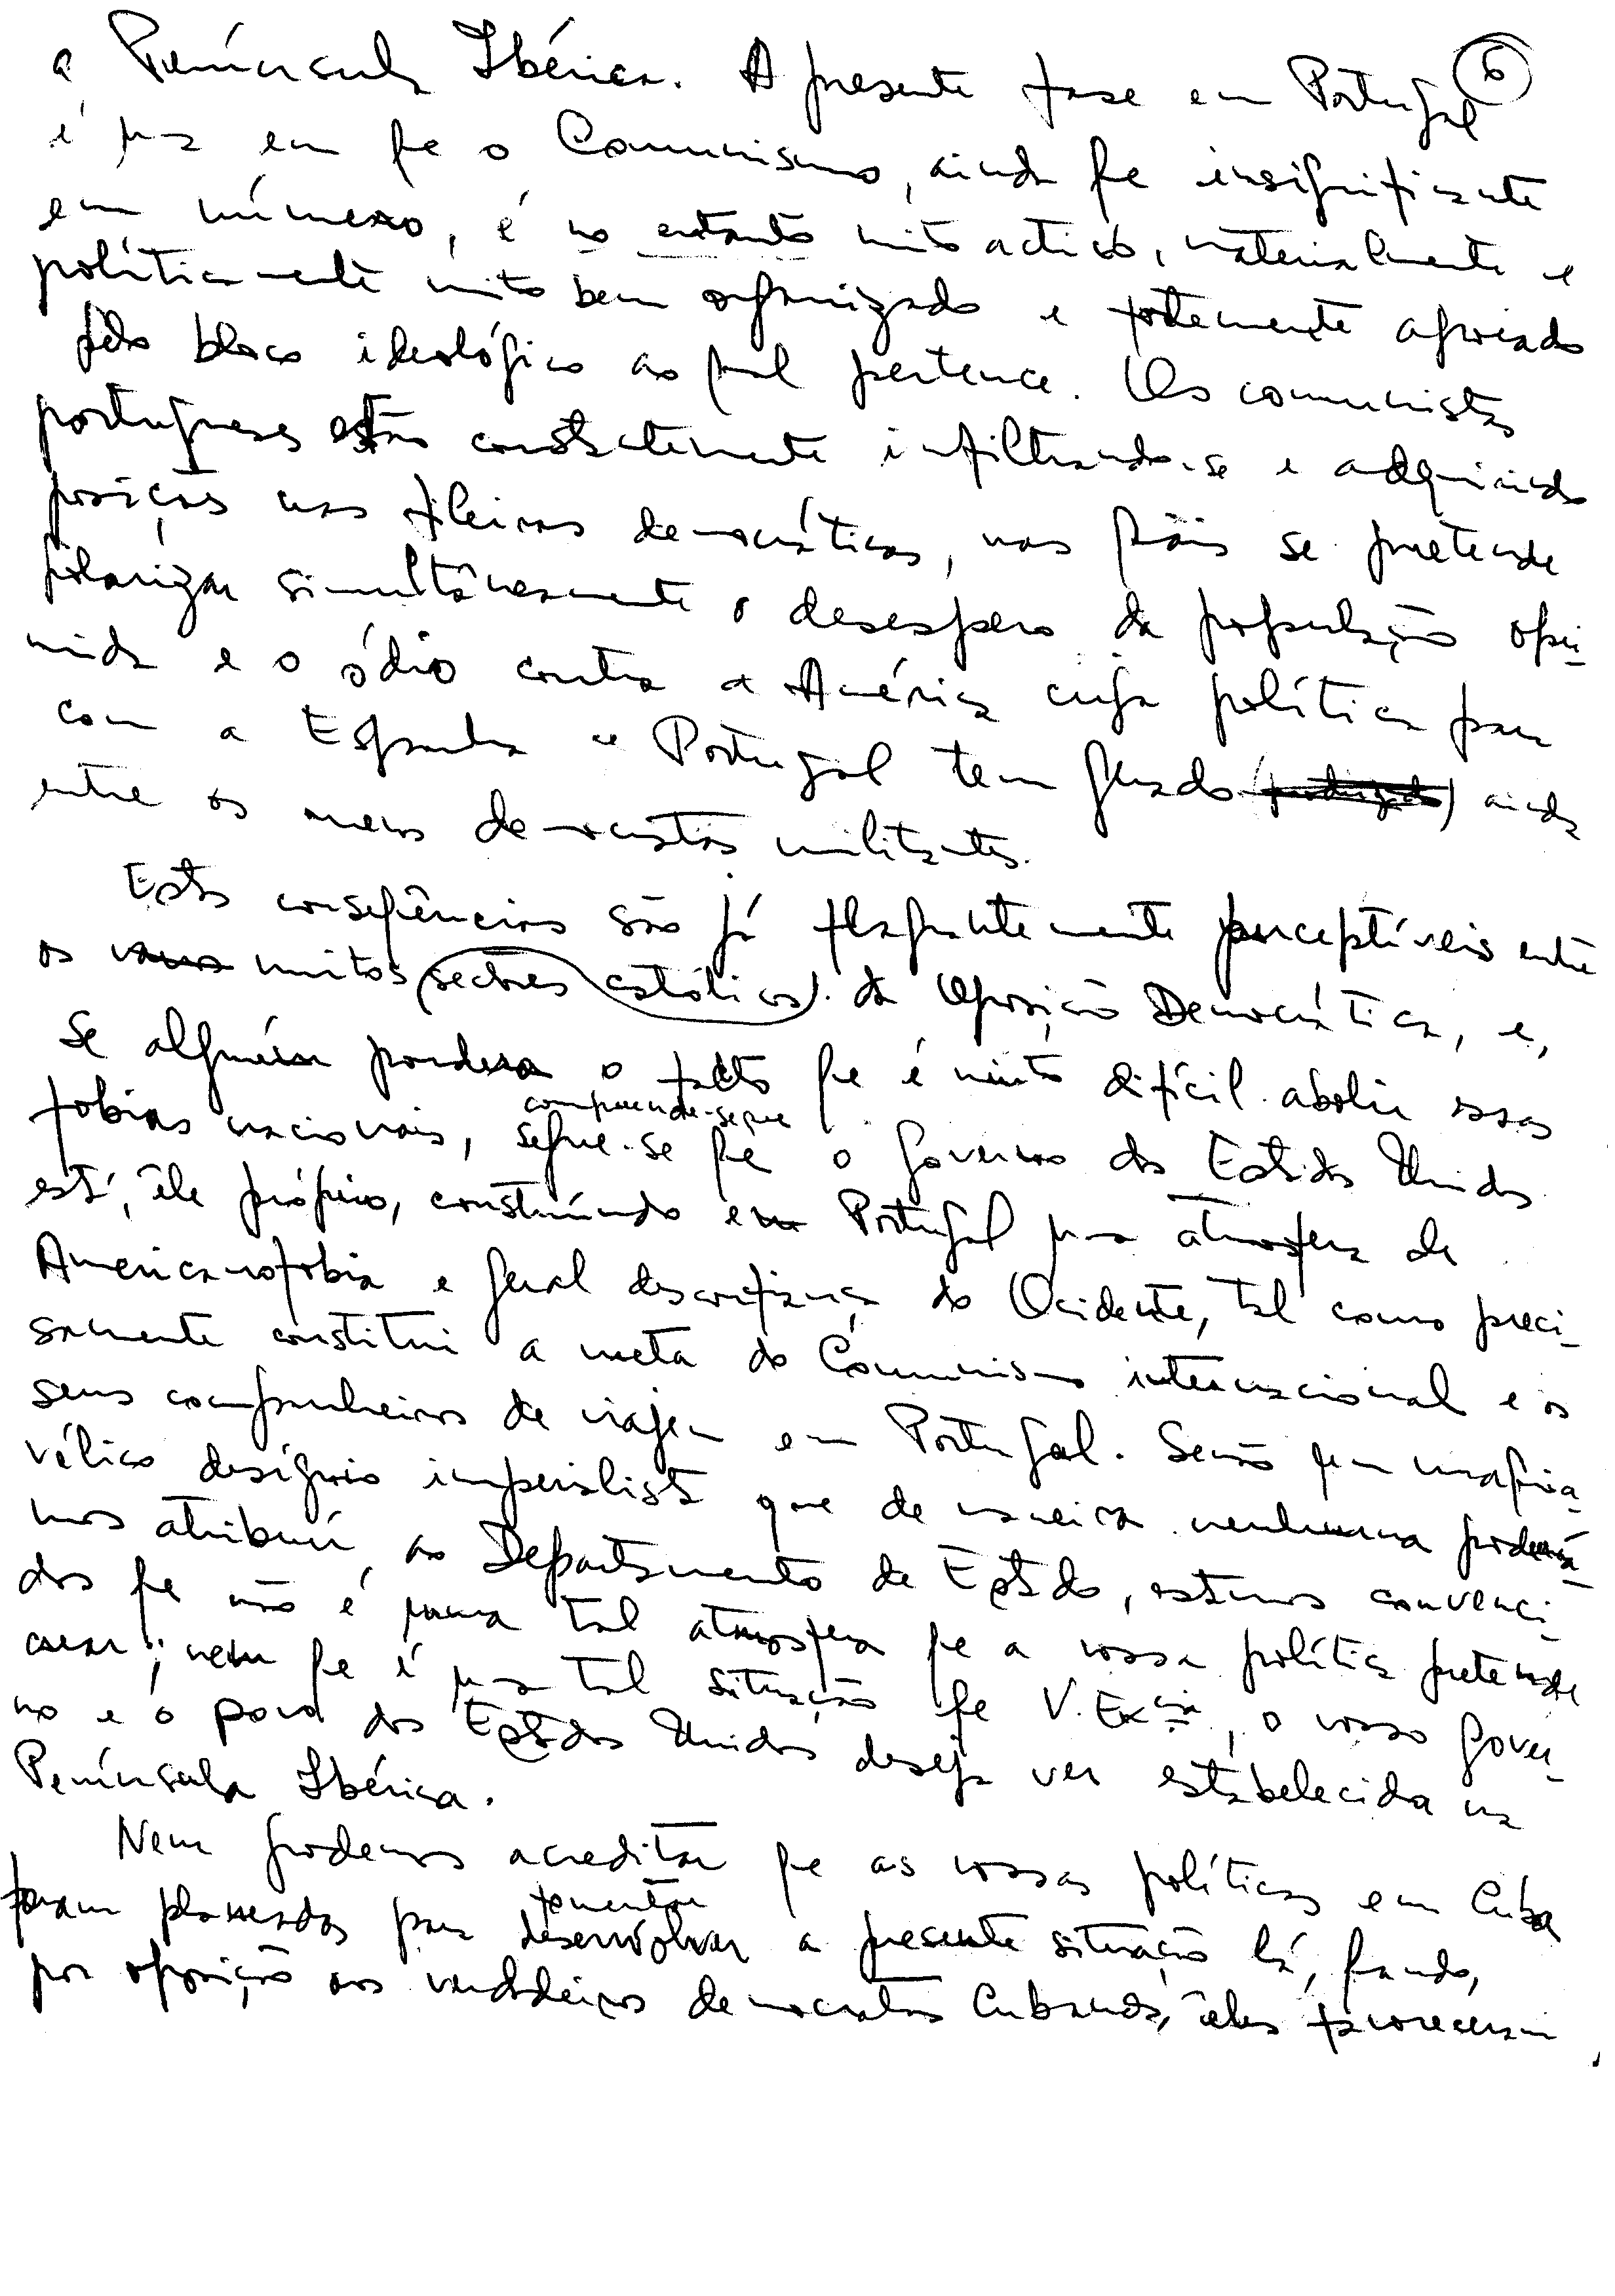 a Península Ibérica. A presente fase em Portugal 6
é uma em que o Comunismo, ainda que insignificante
em número, é no entanto muito activo, materialmente e
políticamente muito bem organizado e fortemente apoiado
pelo bloco ideológico ao qual pertence. Os comunistas
portugueses estão constantemente infiltrando-se e adquirindo
posições nas fileiras democráticas, nas quais se pretende
polarizar simultâneamente o desespero da população opri-
mida e o ódio contra a América cuja política para
com a Espanha e Portugal tem gerado (produzido) ainda
entre os meros democratas militantes.
Estas conseqüências são já flagrantemente perceptíveis entre
os muitos (sectores católicos). da Oposição Democrática, e,
se alguém pondera o facto que é muito difícil abolir essas
fobias nacionais, segue-se compreende-se que que o Governo dos Estados Unidos
está, êle próprio, construindo em Portugal uma atmosfera de
Americanofobia e geral desconfiança do Ocidente, tal como preci-
samente constitui a meta do Comunismo internacional e os
seus companheiros de viagem em Portugal. Senão um maquia-
vélico desígnio imperialista que de maneira nenhuma podería-
mos atribuir ao Departamento de Estado, estamos convenci-
dos que não é numa tal atmosfera que a vossa política pretende
criar; nem que é uma tal situação que V. Excia, o vosso gover-
no e o povo dos Estados Unidos deseja ver estabelecida na
Península Ibérica.
Nem podemos acreditar que as vossas políticas em Cuba
foram planeadas para desenvolver fomentar a presente situação lá, quando,
por oposição aos verdadeiros democratas Cubanos, eles favoreceram